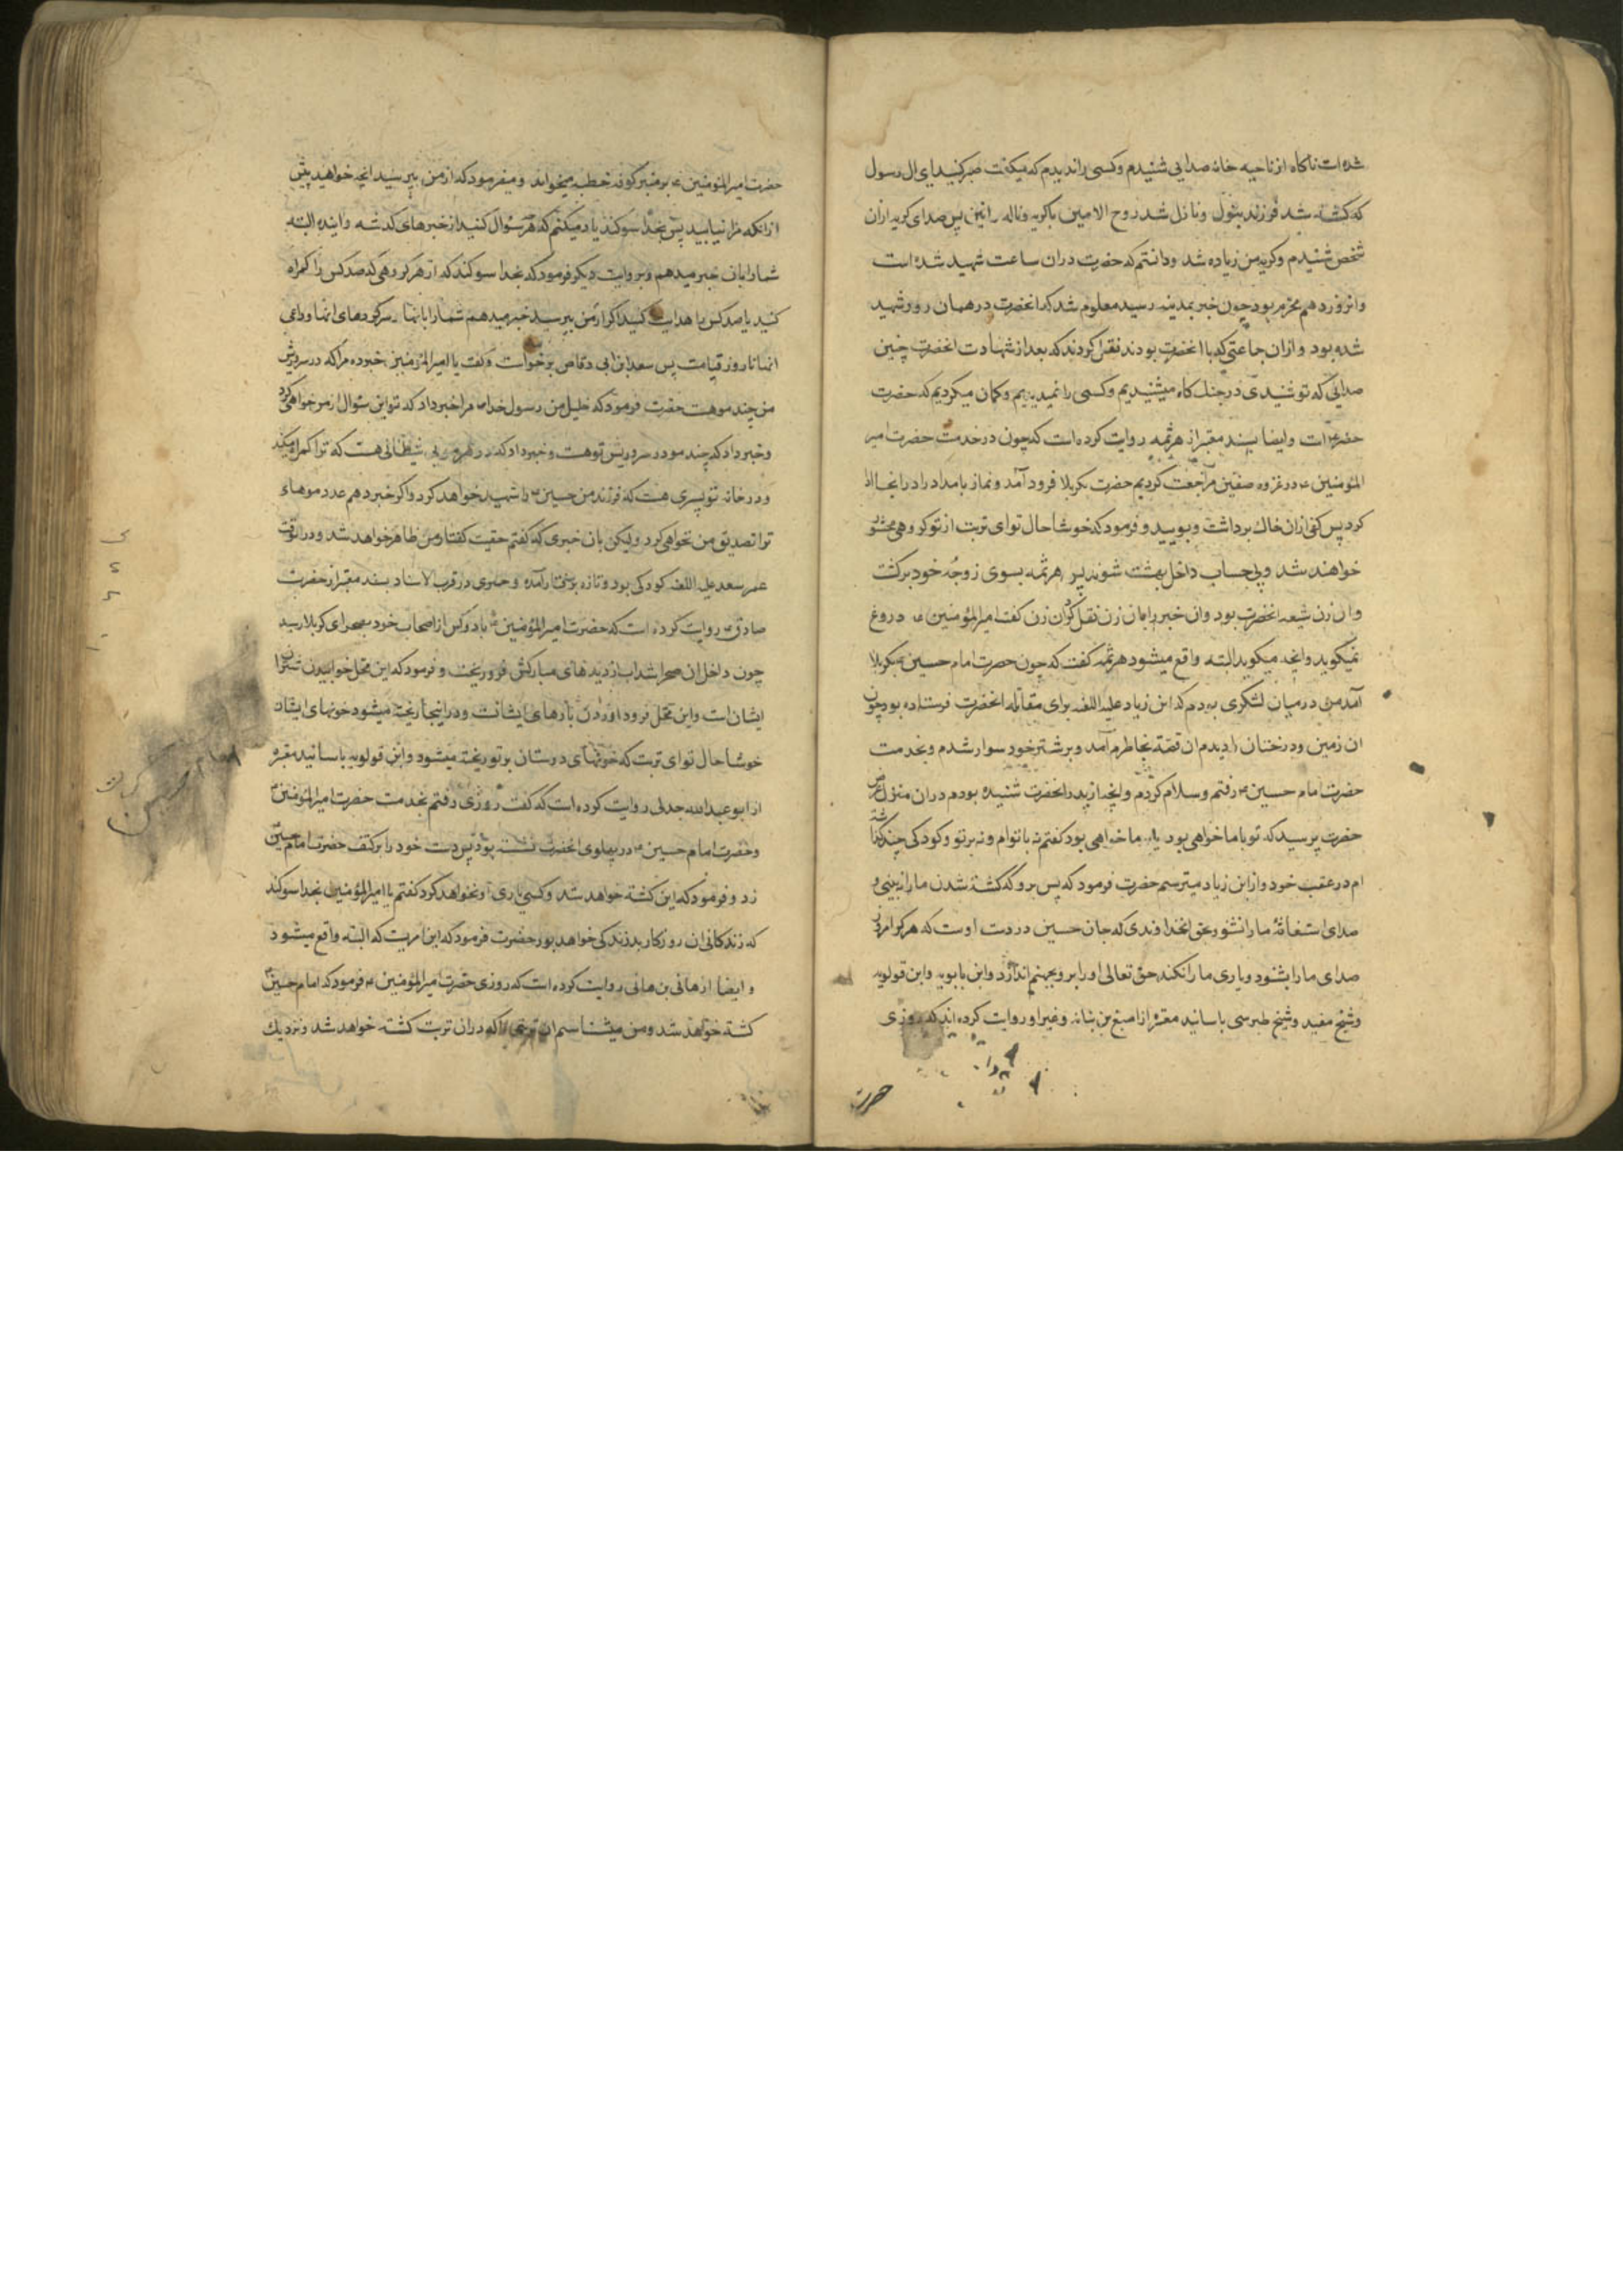 شده است ناکاه از ناحیه خانه صدایی شنیدم وکسی را ندیدم که میکفت صبر کنید ای ال رسول
که کشته شد فرزند بتول ونازل شد روح الامین باکریه وناله وانین پس صدای کریه ازان
شخص شنیدم وکریه من زیاده شد ودانستم که حضرت دران ساعت شهید شده است
وانروز دهم محرم بود چون خبر بمدینه رسید معلوم شد که انحضرت در همان روز شهید
شده بود وازان جماعتی که باانحضرت بودند نقل کردند که بعد از شهادت انحضرت چنین
صدایی که تو شنیدی در جنک کاه میشنیدیم وکسی را نمیدیدیم وکمان میکردیم که حضرت
خضر است وایضا بسند معتبر از هرثمه روایت کرده است که چون در خدمت حضرت امیر
المؤمنین ع در غزوه صفین مراجعت کردیم حضرت بکربلا فرود آمد ونماز بامداد را در انجا ادا
کرد پس کفی ازان خاک برداشت وبویید وفرمود که خوشا حال تو ای تربت از تو کروهی محشور
خواهند شد وبی حساب داخل بهشت شوند پس هرثمه بسوی زوجه خود برکشت
وان زن شیعه انحضرت بود وان خبر را بان زن نقل کرد ان زن کفت امیر المؤمنین ع دروغ
نمیکوید وانچه میکوید البته واقع میشود هرثمه کفت که چون حضرت امام حسین ع بکربلا
آمد من در میان لشکری بودم که ابن زیاد علیه اللعنه برای مقاتله انحضرت فرستاده بود چون
ان زمین ودرختان را دیدم ان قصه بخاطرم آمد وبر شتر خود سوار شدم وبخدمت
حضرت امام حسین ع رفتم وسلام کردم وانچه از پدر انحضرت شنیده بودم دران منزل عرض
حضرت پرسید که تو باما خواهی بود یا بر ما خواهی بود کفتم نه باتوام ونه بر تو وکودکی چند کذاشته
ام در عقب خود واز ابن زیاد میترسم حضرت فرمود که پس برو که کشته شدن ما را نه بینی و
صدای استغاثهٔ ما را نشنوی بحق انخداوندی که جان حسین در دست اوست که هر که امروز
صدای ما را بشنود ویاری ما را نکند حق تعالی او را بر رو بجهنم اندازد وابن بابویه وابن قولویه
وشیخ مفید وشیخ طبرسی باسانید معتبر از اصبغ بن نباته وغیر او روایت کرده اند که روزی
حضرت
حضرت امیر المؤمنین ع بر منبر کوفه خطبه میخواند ومیفرمود که از من بپرسید انچه خواهید پیش
ازانکه مرا نیابید پس بخدا سوکند یاد میکنم که هر سئوال کنید از خبرهای کذشته واینده البته
شما را بان خبر میدهم وبروایت دیکر فرمود که بخدا سوکند که از هر کروهی که صد کس را کمراه
کنید یا صد کس را هدایت کنید اکر از من بپرسید خبر میدهم شما را بانها وسرکردهای انها وداعی
انها تا روز قیامت پس سعد ابن ابی وقاص برخواست وکفت یا امیر المؤمنین خبر ده مرا که در سر وریش
من چند مو هست حضرت فرمود که خلیل من رسول خدا ص مرا خبر داد که تو این سئوال از من خواهی کرد
وخبر داد که چند مو در سر وریش تو هست وخبر داد که در هر موی شیطانی هست که ترا کمراه میکند
ودر خانه تو پسری هست که فرزند من حسین ع را شهید خواهد کرد واکر خبر دهم عدد موهای
ترا تصدیق من نخواهی کرد ولیکن بان خبری که کفتم حقیت کفتار من ظاهر خواهد شد ودر انوقت
عمر سعد علیه اللعنه کودکی بود وتازه برفتار آمده وحمیری در قرب الاسناد بسند معتبر از حضرت
صادق ع روایت کرده است که حضرت امیر المؤمنین ع با دو کس از اصحاب خود بصحرای کربلا رسید
چون داخل ان صحرا شد اب از دیدهای مبارکش فرو ریخت وفرمود که این محل خوابیدن شتران
ایشان است واین محل فرود اوردن بارهای ایشانست ودر اینجا ریخته میشود خونهای ایشان
خوشا حال تو ای تربت که خونهای دوستان بر تو ریخته میشود وابن قولویه باسانید معتبره
از ابو عبد الله جدلی روایت کرده است که کفت روزی رفتم بخدمت حضرت امیر المؤمنین ع
وحضرت امام حسین ع در پهلوی انحضرت نشسته بود پس دست خود را بر کتف حضرت امام حسین
زد وفرمود که این کشته خواهد شد وکسی یاری او نخواهد کرد کفتم یا امیر المؤمنین بخدا سوکند
که زندکانی ان روزکار بد زندکی خواهد بود حضرت فرمود که این امریست که البته واقع میشود
وایضا از هانی بن هانی روایت کرده است که روزی حضرت امیر المؤمنین ع فرمود که امام حسین ع
کشته خواهد شد ومن میشناسم ان تربتی را که دران تربت کشته خواهد شد ونزدیک